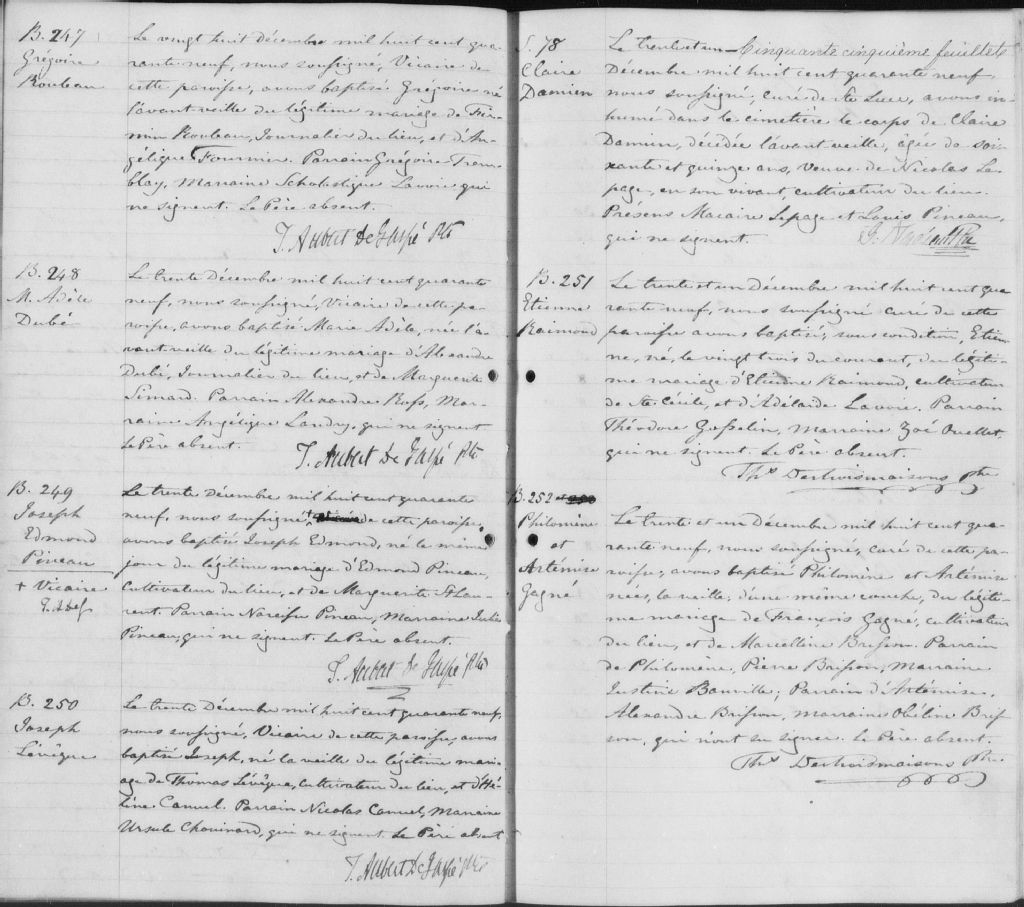 B. 247
Grégoire
Rouleau
Le vingt huit Décembre mil huit cent qua-
rante neuf, nous soussigné, Vicaire de
cette paroisse, avons baptisé Grégoire né
l'avant veille du légitime mariage de Fir-
min Rouleau, Journalier du lieu, et d'An-
gélique Fournier. Parrain Grégoire Trem-
blay, Marraine Scholastique Lavoie qui
ne signent. Le Père absent.
T. Aubert De Gaspé Ptre
B. 248
M. Adèle
Dubé
Le trente Décembre mil huit cent quarante
neuf, nous soussigné, Vicaire de cette pa-
roisse, avons baptisé Marie Adèle, née l'a-
vant veille du légitime mariage d'Alexandre
Dubé, Journalier du lieu, et de Marguerite
Simard. Parrain Alexandre Ross, Mar-
raine Angélique Landry, qui ne signent
le Père absent.
T. Aubert De Gaspé Ptre
B. 249
Joseph
Edmond
Pineau
+ Vicaire
Le trente Décembre mil huit cent quarante
neuf, nous soussigné + de cette paroisse,
avons baptisé Joseph Edmond, né le même
jour du légitime mariage d'Edmond Pineau,
Cultivateur du lieu, et de Marguerite StLau-
rent. Parrain Narcisse Pineau, Marraine Julie
Pineau, qui ne signent. Le Père absent.
T. Aubert De Gaspé Ptre
B. 250
Joseph
Lévêque
Le trente Décembre mil huit cent quarante neuf,
nous soussigné, Vicaire de cette paroisse, avons
baptisé Joseph, né la veille du légitime mari-
age de Thomas Lévêque, Cultivateur du lieu, et d'Hé-
lène Canuel. Parrain Nicolas Canuel, Marraine
Ursule Chouinard, qui ne signent. Le Père absent
T. Aubert De Gaspé Ptre
S. 78
Claire
Damien
Cinquante cinquième feuillet
Le trente et un
Décembre mil huit cent quarante neuf,
nous soussigné, curé de Ste Luce, avons in-
humé dans le cimetière le corps de Claire
Damien, décédée l'avant veille, âgée de soi-
xante et quinze ans, Veuve de Nicolas Le-
page, en son vivant, cultivateur du lieu.
Présens Macaire Lepage et Louis Pineau,
qui ne signent.
B. 251
Etienne
Raimond
Le trente et un Décembre mil huit cent qua-
rante neuf, nous soussigné curé de cette
paroisse avons baptisé, sous condition, Etien-
ne, né, le vingt trois du courant, du légiti-
me mariage d'Etienne Raimond, cultivateur
de Ste Cécile, et d'Adélaïde Lavoie. Parrain
Théodore Gosselin, Marraine Zoé Ouellet,
qui ne signent. Le Père absent.
Ths Destroismaisons Ptre
B. 252
Philomène
et
Artémise
Gagné
Le trente et un Décembre mil huit cent qua-
rante neuf, nous soussigné, curé de cette pa-
roisse, avons baptisé Philomène et Artémise
nées, la veille, d'une même couche, du légiti-
me mariage de François Gagné, cultivateur
du lieu, et de Marcelline Brisson. Parrain
de Philomène, Pierre Brisson, Marraine
Justine Banville; Parrain d'Artémise,
Alexandre Brisson, marraine Obéline Bris-
son, qui n'ont su signer. Le Père absent.
Ths Destroismaisons Ptre